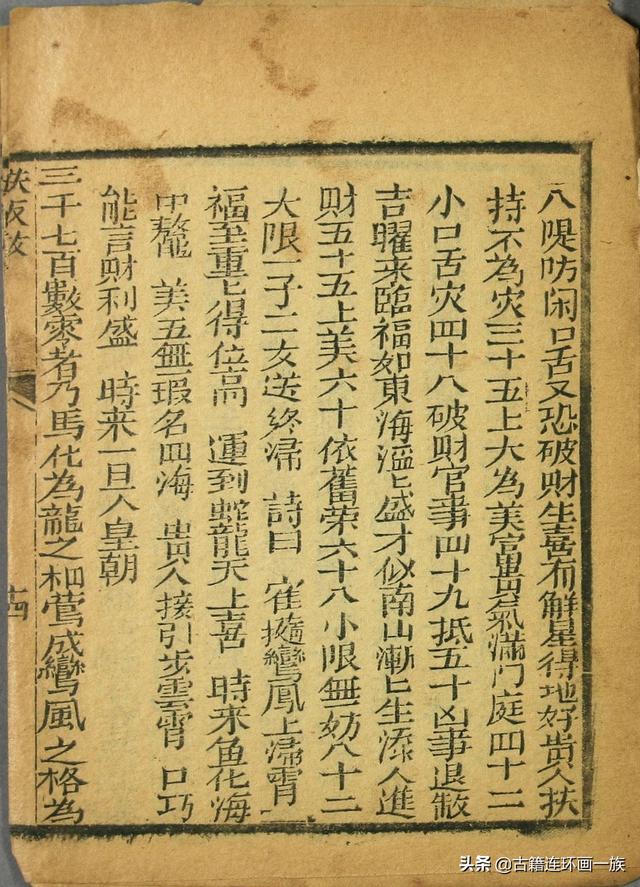 八隄防闲口舌又恐破財生喜有解星得地好贵人扶
持不為灾三十五上大為美富貴氣滿门庭四十二
小口舌灾四十八破財官事四十九抵五十凶事退散
吉曜来臨福如東海滔〻盛才似南山漸〻生添人進
財五十五上美六十依舊荣六十八小限無妨八十二
大限一子二女送終歸 詩曰 隨鸞鳳上歸霄
福至重〻得位高 運到蛇龍天上喜 時来鱼化海
中鰲 美玉無瑕名四海 贵人接引步雲霄 口巧
能言財利盛 時来一旦入皇朝
三千七百數零者乃馬化為龍之相鶯成鸞凤之格為
十四
头条 @古籍连环画一族